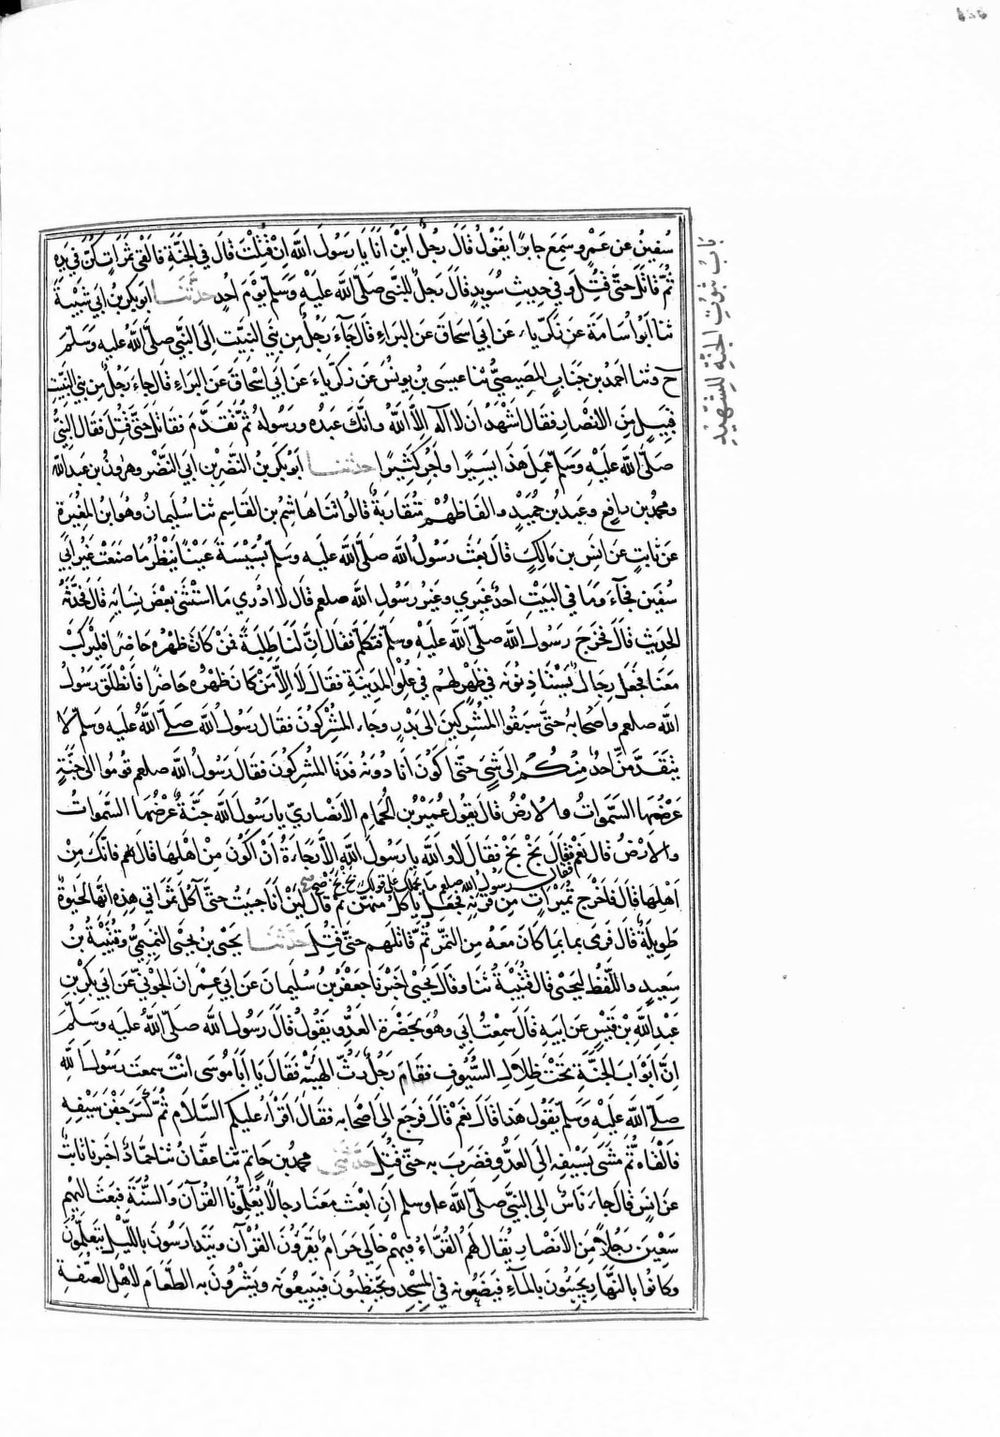 باب ثبوت الجنة للشهيد
سفين عن عمرو سمع جابرا يقول قال رجل اين انا يا رسول الله ان قتلت قال في الجنة فالقى تمرات كن في يده
ثم قاتل حتى قتل وفي حديث سويد قال رجل للنبي صلى الله عليه وسلم يوم احد حدثنا ابو بكر بن ابي شيبة
ثنا ابو اسامة عن زكرياء عن ابي اسحاق عن البراء قال جاء رجل من بني النبيت الى النبي صلى الله عليه وسلم
ح وثنا احمد بن جناب المصيصي ثنا عيسى بن يونس عن زكرياء عن ابي اسحاق عن البراء قال جاء رجل من بني النبيت
قبيل من الانصار فقال اشهد ان لا اله الا الله وانك عبده ورسوله ثم تقدم فقاتل حتى قتل فقال النبي
صلى الله عليه وسلم عمل هذا يسيرا واجر كثيرا حدثنا ابو بكر بن النضر بن ابي النضر وهرون بن عبد الله
ومحمد بن رافع وعبد بن حميد والفاظهم متقاربة قالوا ثنا هاشم بن القاسم ثنا سليمان وهو ابن المغيرة
عن ثابت عن انس بن مالك قال بعث رسول الله صلى الله عليه وسلم بسيسة عينا ينظر ما صنعت عير ابي
سفين فجاء وما في البيت احد غيري وغير رسول الله صلعم قال لا ادري ما استثنى بعض نسايه قال فحدثه
الحديث قال فخرج رسول الله صلى الله عليه وسلم فتكلم فقال ان لنا طلبة فمن كان ظهره حاضرا فليركب
معنا فجعل رجال يستاذنونه في ظهرهم في علو المدينة فقال لا الا من كان ظهره حاضرا فانطلق رسول
الله صلعم واصحابه حتى سبقوا المشركين الى بدر وجاء المشركون فقال رسول الله صلى الله عليه وسلم لا
يتقدمن احد منكم الى شي حتى اكون انا دونه فدنا المشركون فقال رسول الله صلعم قوموا الى جنة
عرضها السموات والارض قال يقول عمير بن الحمام الانصاري يا رسول الله جنة عرضها السموات
والارض قال نعم فقال بخ بخ فقال لا والله يا رسول الله الا رجاءة ان اكون من اهلها قال نعم فانك من
فقال رسول الله صلعم ما يحملك على قولك بخ بخ صح
اهلها قال فاخرج تميرات من قرنه فجعل ياكل منهن ثم قال لين انا حييت حتى آكل تمراتي هذه انها لحيوة
طويلة قال فرمى بما كان معه من التمر ثم قاتلهم حتى قتل حدثنا يحيى بن يحيى التميمي وقتيبة بن
سعيد واللفظ ليحيى قال قتيبة ثنا وقال يحيى اخبرنا جعفر بن سليمان عن ابي عمران الجوني عن ابي بكر بن
عبد الله بن قيس عن ابيه قال سمعت ابي وهو بحضرة العدو يقول قال رسول الله صلى الله عليه وسلم
ان ابواب الجنة تحت ظلال السيوف فقام رجل رث الهيئة فقال يا ابا موسى انت سمعت رسول الله
صلى الله عليه وسلم يقول هذا قال نعم قال فرجع الى اصحابه فقال اقرأ عليكم السلام ثم كسر جفن سيفه
فالقاه ثم مشى بسيفه الى العدو فضرب به حتى قتل حدثني محمد بن حاتم ثنا عفان ثنا حماد اخبرنا ثابت
عن انس قال جاء ناس الى النبي صلى الله عليه وسلم ان ابعث معنا رجالا يعلمونا القرآن والسنة فبعث اليهم
سبعين رجلا من الانصار يقال لهم القراء فيهم خالي حرام يقرؤن القرآن ويتدارسون بالليل يتعلمون
وكانوا بالنهار يجيئون بالماء فيضعونه في المسجد ويحتطبون فيبيعونه ويشترون به الطعام لاهل الصفة